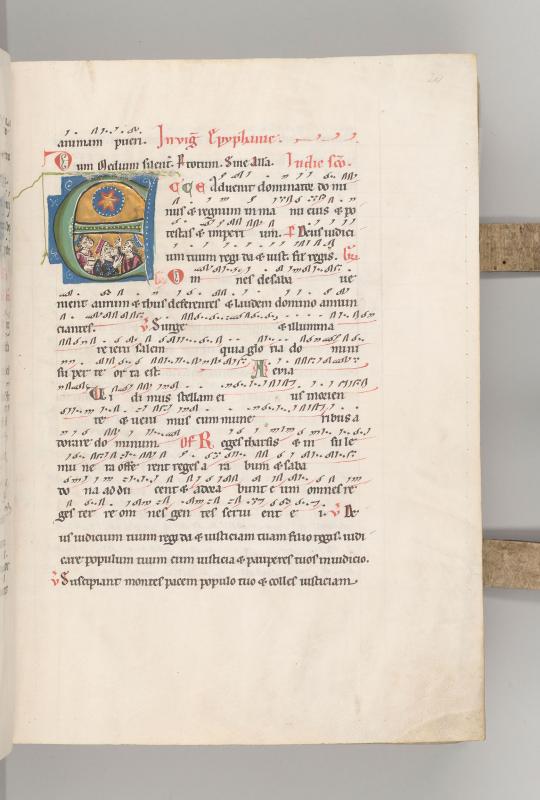 animam pueri. In vig̃ Epyphanie.
Dum medium silent. Require totum. Sine Alla. In die sc̃o.
ECCE advenit dominator do mi
nus & regnum in ma nu eius & po
testas & imperi um. P Deus iudici
um tuum regi da & iust. fil' regis. Gr̃.
Om nes de saba ve
nient aurum & thus deferentes & laudem domino annun
ciantes. V Surge & illumina
re ieru salem quia glo ria do mini
su per te or ta est. Al evia
Vi di mus stellam ei us in orien
te & veni mus cum mune ribus a
dorare do minum. OF Reges tharsis & in su le
mu ne ra offe rent reges a ra bum & saba
do na ad du cent & adora bunt e um omnes re
ges ter re om nes gen tes servi ent e i. V De
us iudicium tuum regi da & iusticiam tuam filio regis. iudi
care populum tuum cum iusticia & pauperes tuos in iudicio.
V Suscipiant montes pacem populo tuo & colles iusticiam